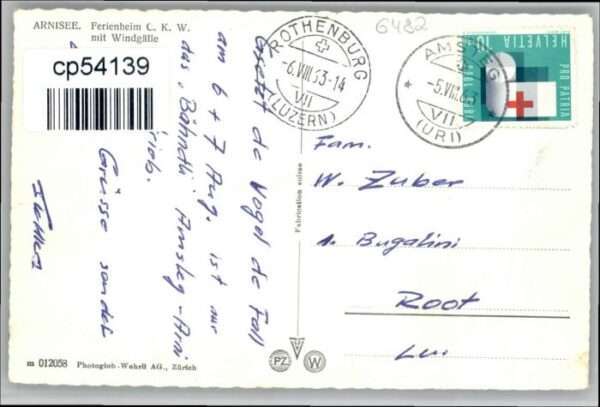 ARNISEE. Ferienheim C. K. W.
mit Windgälle
cp54139
Gesetzt de Vogel de Fall
am 6 + 7 Aug. ist nur
das "Bähndli" Amsteg-Arni
Grüsse sendet
ROTHENBURG
-6.VIII.63-14
VII
(LUZERN)
6482
AMSTEG
-5.VIII.63
VII
(URI)
HELVETIA 10
PRO PATRIA
Fabrication suisse
Fam.
W. Zuber
Root
Luz.
PZ
W
m 012058 Photoglob-Wehrli AG., Zürich